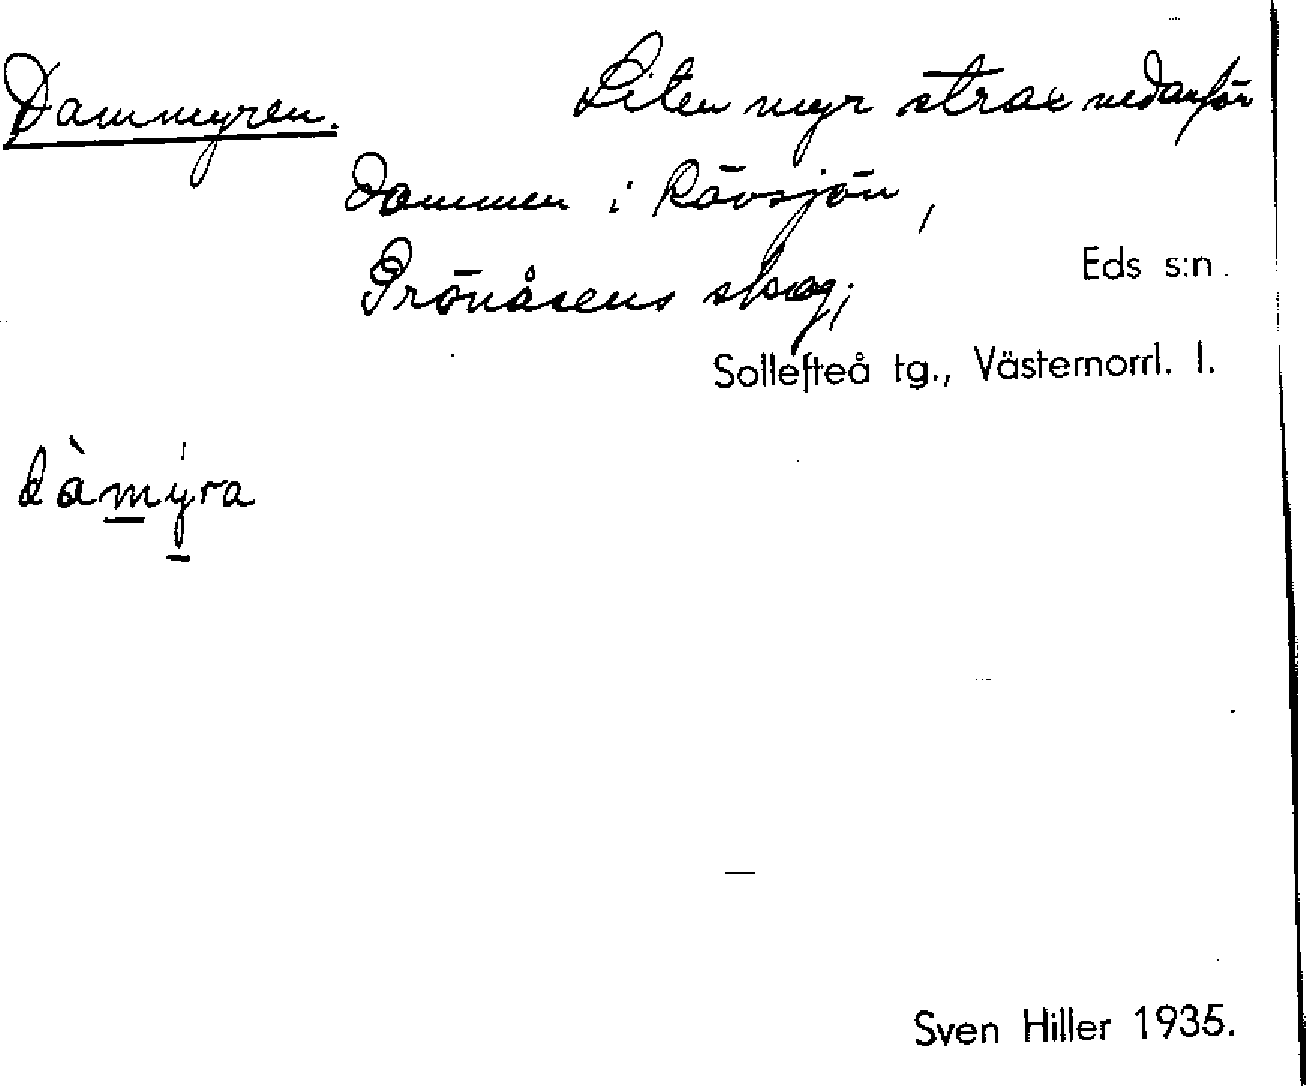 Dammyren. Liten myr strax nedanför
Dammen i Rävsjön,
Grönåsens skog;
Eds s:n.
Sollefteå tg., Västernorrl. l.
dàmýra
Sven Hiller 1935.